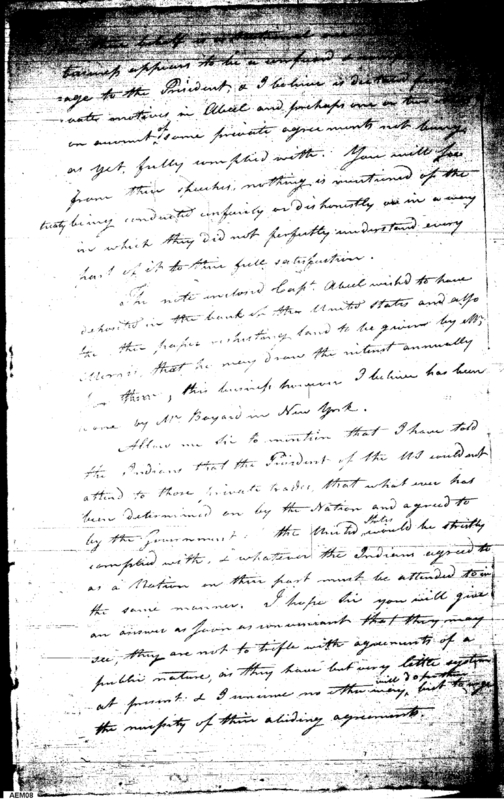 their behalf
business appears to be a confused
sage to the President, & I believe is dictated from
vate motives in Abeel and perhaps one or two
on account of some private agreements not being
as yet, fully complied with. You will see
from their speeches, nothing is mentioned of the
treaty being conducted unfairly or dishonestly or in a way
in which they did not perfectly understand every
part of it to their full satisfaction.
The note enclosed Capt. Abeel wish'd to have
deposited in the bank of the United States and also
the other paper respecting land to be given by Mr.
Morris, that he may draw the interest annually
from them, this business however I believe has been
done by Mr Bayard in New York.
Allow me Sir to mention that I have told
the Indians that the President of the US could not
attend to those private trades, that what ever has
been determined on by the Nation and agreed to
by the Government the United States would be strictly
complied with, & whatever the Indians agreed to
as a Nation on their part must be attended to in
the same manner. I hope Sir you will give
an answer as soon as convenient that they may
see, they are not to trifle with agreements of a
public nature, as they have but very little system
at present & I conceive no other way will do but to urge
the necessity of their abiding agreements.
AEM08